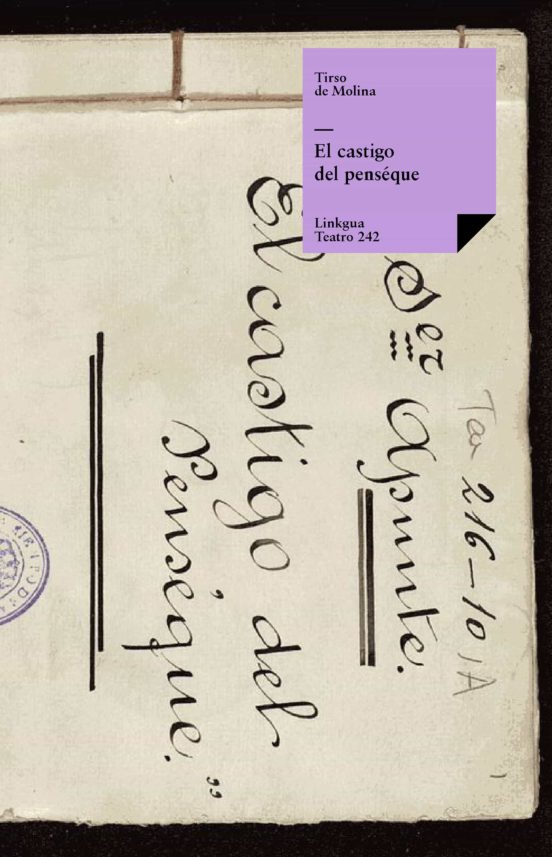 Tirso
de Molina
—
El castigo
del penséque
Linkgua
Teatro 242
Tea 216-10, A
er Apunte.
El castigo del
Penséque."